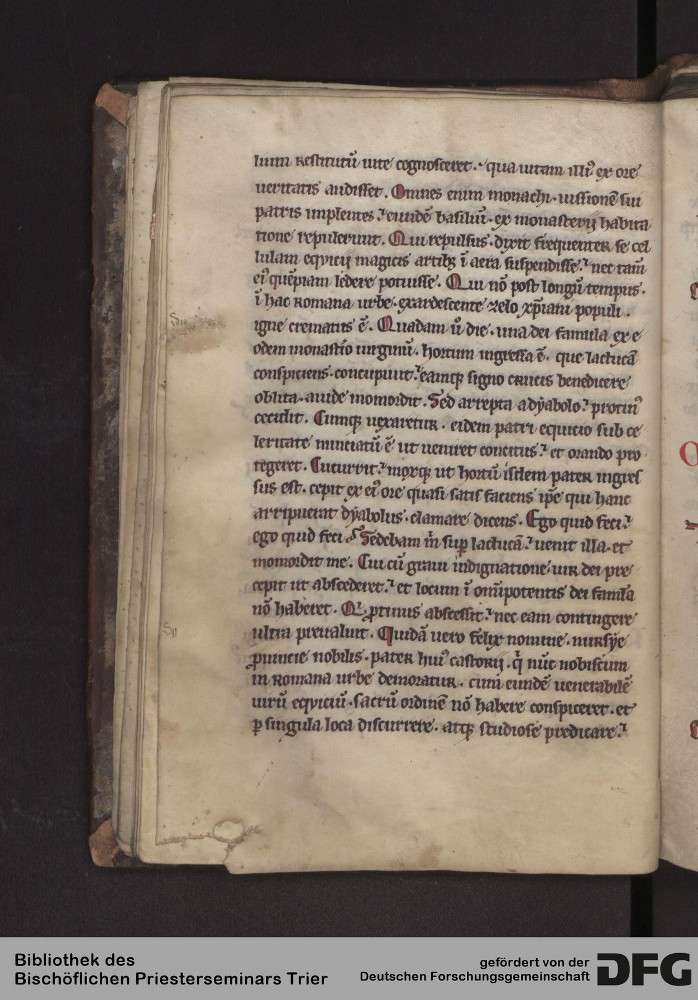 lium restitutū uite cognosceret. qua uitam illiꝰ ex ore
ueritatis audisset. Omnes enim monachi. uissionē sui
patris implentes.' eundē basiliū. ex monasterij habita
tione repulerunt. Qui repulsus. dixit frequenter se cel
lulam eqvicij magicis artibꝫ ī aera suspendisse.' nec tam̄
eiꝰ quēpiam ledere potuisse. Qui nō post longū tempus.
ī hac romana urbe. exardescente zelo xp̄iani populi.
igne crematus ē. Quadam ū die. una dei famula ex e
odem monast̄io uirginū. hortum ingressa ē. que lactucā
conspiciens. concupiuit.' eamqꝫ signo crucis benedicere
oblita. auide momordit. Sed arrepta a dẏabolo.' protinꝰ
cecidit. Cumqꝫ uexaretur. eidem patri equicio sub ce
leritate nunciatū ē ut ueniret concitus.' et orando pro
tegeret. Cucurrit.' moxqꝫ ut hortū isdem pater ingres
sus est. cepit ex eiꝰ ore quasi satis faciens ip̄e qui hanc
arripuerat dẏabolus. clamare dicens. Ego quid feci.'
ego quid feci. Sedebam m̄ sup̱ lactucā.' uenit illa. et
momordit me. Cui cū graui indignatione uir dei pre
cepit ut abscederet.' et locum ī omīpotentis dei famla
nō haberet. Qi ꝓtinus abscessit.' nec eam contingere
ultra preualuit. Quidā uero felix nomine. nursẏe
ꝓuincie nobilis. pater huiꝰ castorij. q̄ nūc nobiscum
in romana urbe demoratur. cum eundē uenerabilē
uirū eqviciū. sacrū ordinē nō habere conspiceret. et
ꝑ singula loca discurrere. atqꝫ studiose predicare.'
Bibliothek des
Bischöflichen Priesterseminars Trier
gefördert von der
Deutschen Forschungsgemeinschaft
DFG